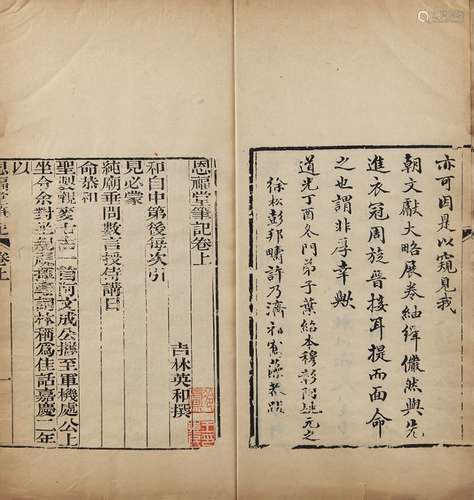 亦可因是以窺見我
朝文獻大略展卷紬繹儼然與先
進衣冠周旋晉接耳提而面命
之也謂非厚幸歟
道光丁酉冬門弟子葉紹本穆彰阿姚元之
徐松彭邦疇許乃濟祁寯藻恭跋
恩福堂筆記卷上
吉林英和撰
和自中第後每次引
見必蒙
純廟垂問數言授侍講日
命恭和
聖製親麥七古一篇阿文成公攜至軍機處公上
坐令余對 詞林稱為佳話嘉慶二年
以
恩福堂筆記 卷上